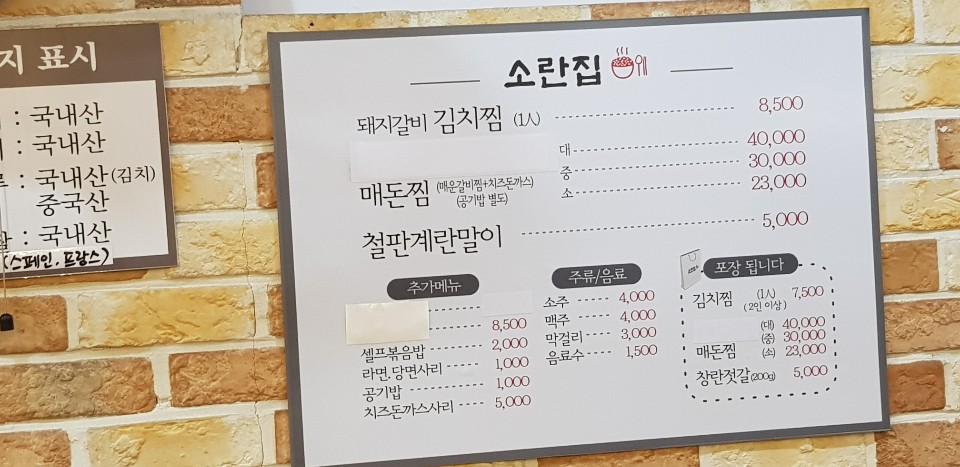 지 표시
: 국내산
: 국내산
: 국내산(김치)
중국산
: 국내산
(스페인, 프랑스)
소란집
돼지갈비 김치찜 (1人) 8,500
대 40,000
중 30,000
매돈찜 (매운갈비찜+치즈돈까스) (공기밥 별도) 소 23,000
철판계란말이 5,000
추가메뉴
8,500
셀프볶음밥 2,000
라면.당면사리 1,000
공기밥 1,000
치즈돈까스사리 5,000
주류/음료
소주 4,000
맥주 4,000
막걸리 3,000
음료수 1,500
포장 됩니다
김치찜 (1人) 7,500
(2인 이상)
(대) 40,000
(중) 30,000
매돈찜 (소) 23,000
창란젓갈(200g) 5,000